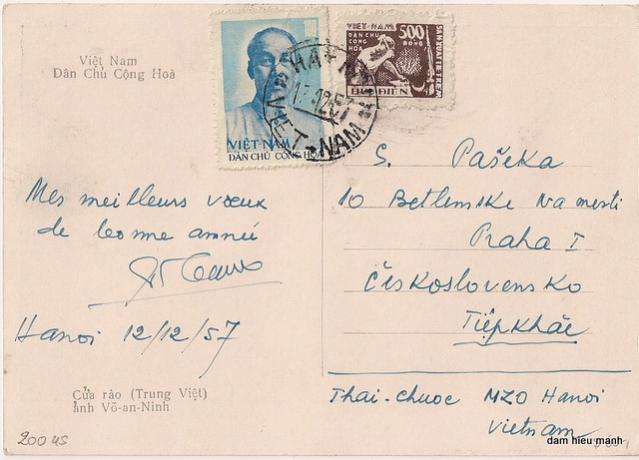 Việt Nam
Dân Chủ Cộng Hoà
VIỆT-NAM
DÂN CHỦ CỘNG HOÀ
VIỆT-NAM
DÂN CHỦ
CỘNG
HOÀ
500
ĐỒNG
SẢN XUẤT LE TREM
BƯU ĐIỆN
HA-NOI
12.57
VIET-NAM
Mes meilleurs vœux
de bonne année
Hanoi 12/12/57
Cửa rào (Trung Việt)
ảnh Võ-an-Ninh
S. Pašeka
10 Betlemske Na mesti
Praha I
Československo
Tiệpkhắc
Thai-Chuoc MZO Hanoi
Vietnam
200 US
dam hieu manh